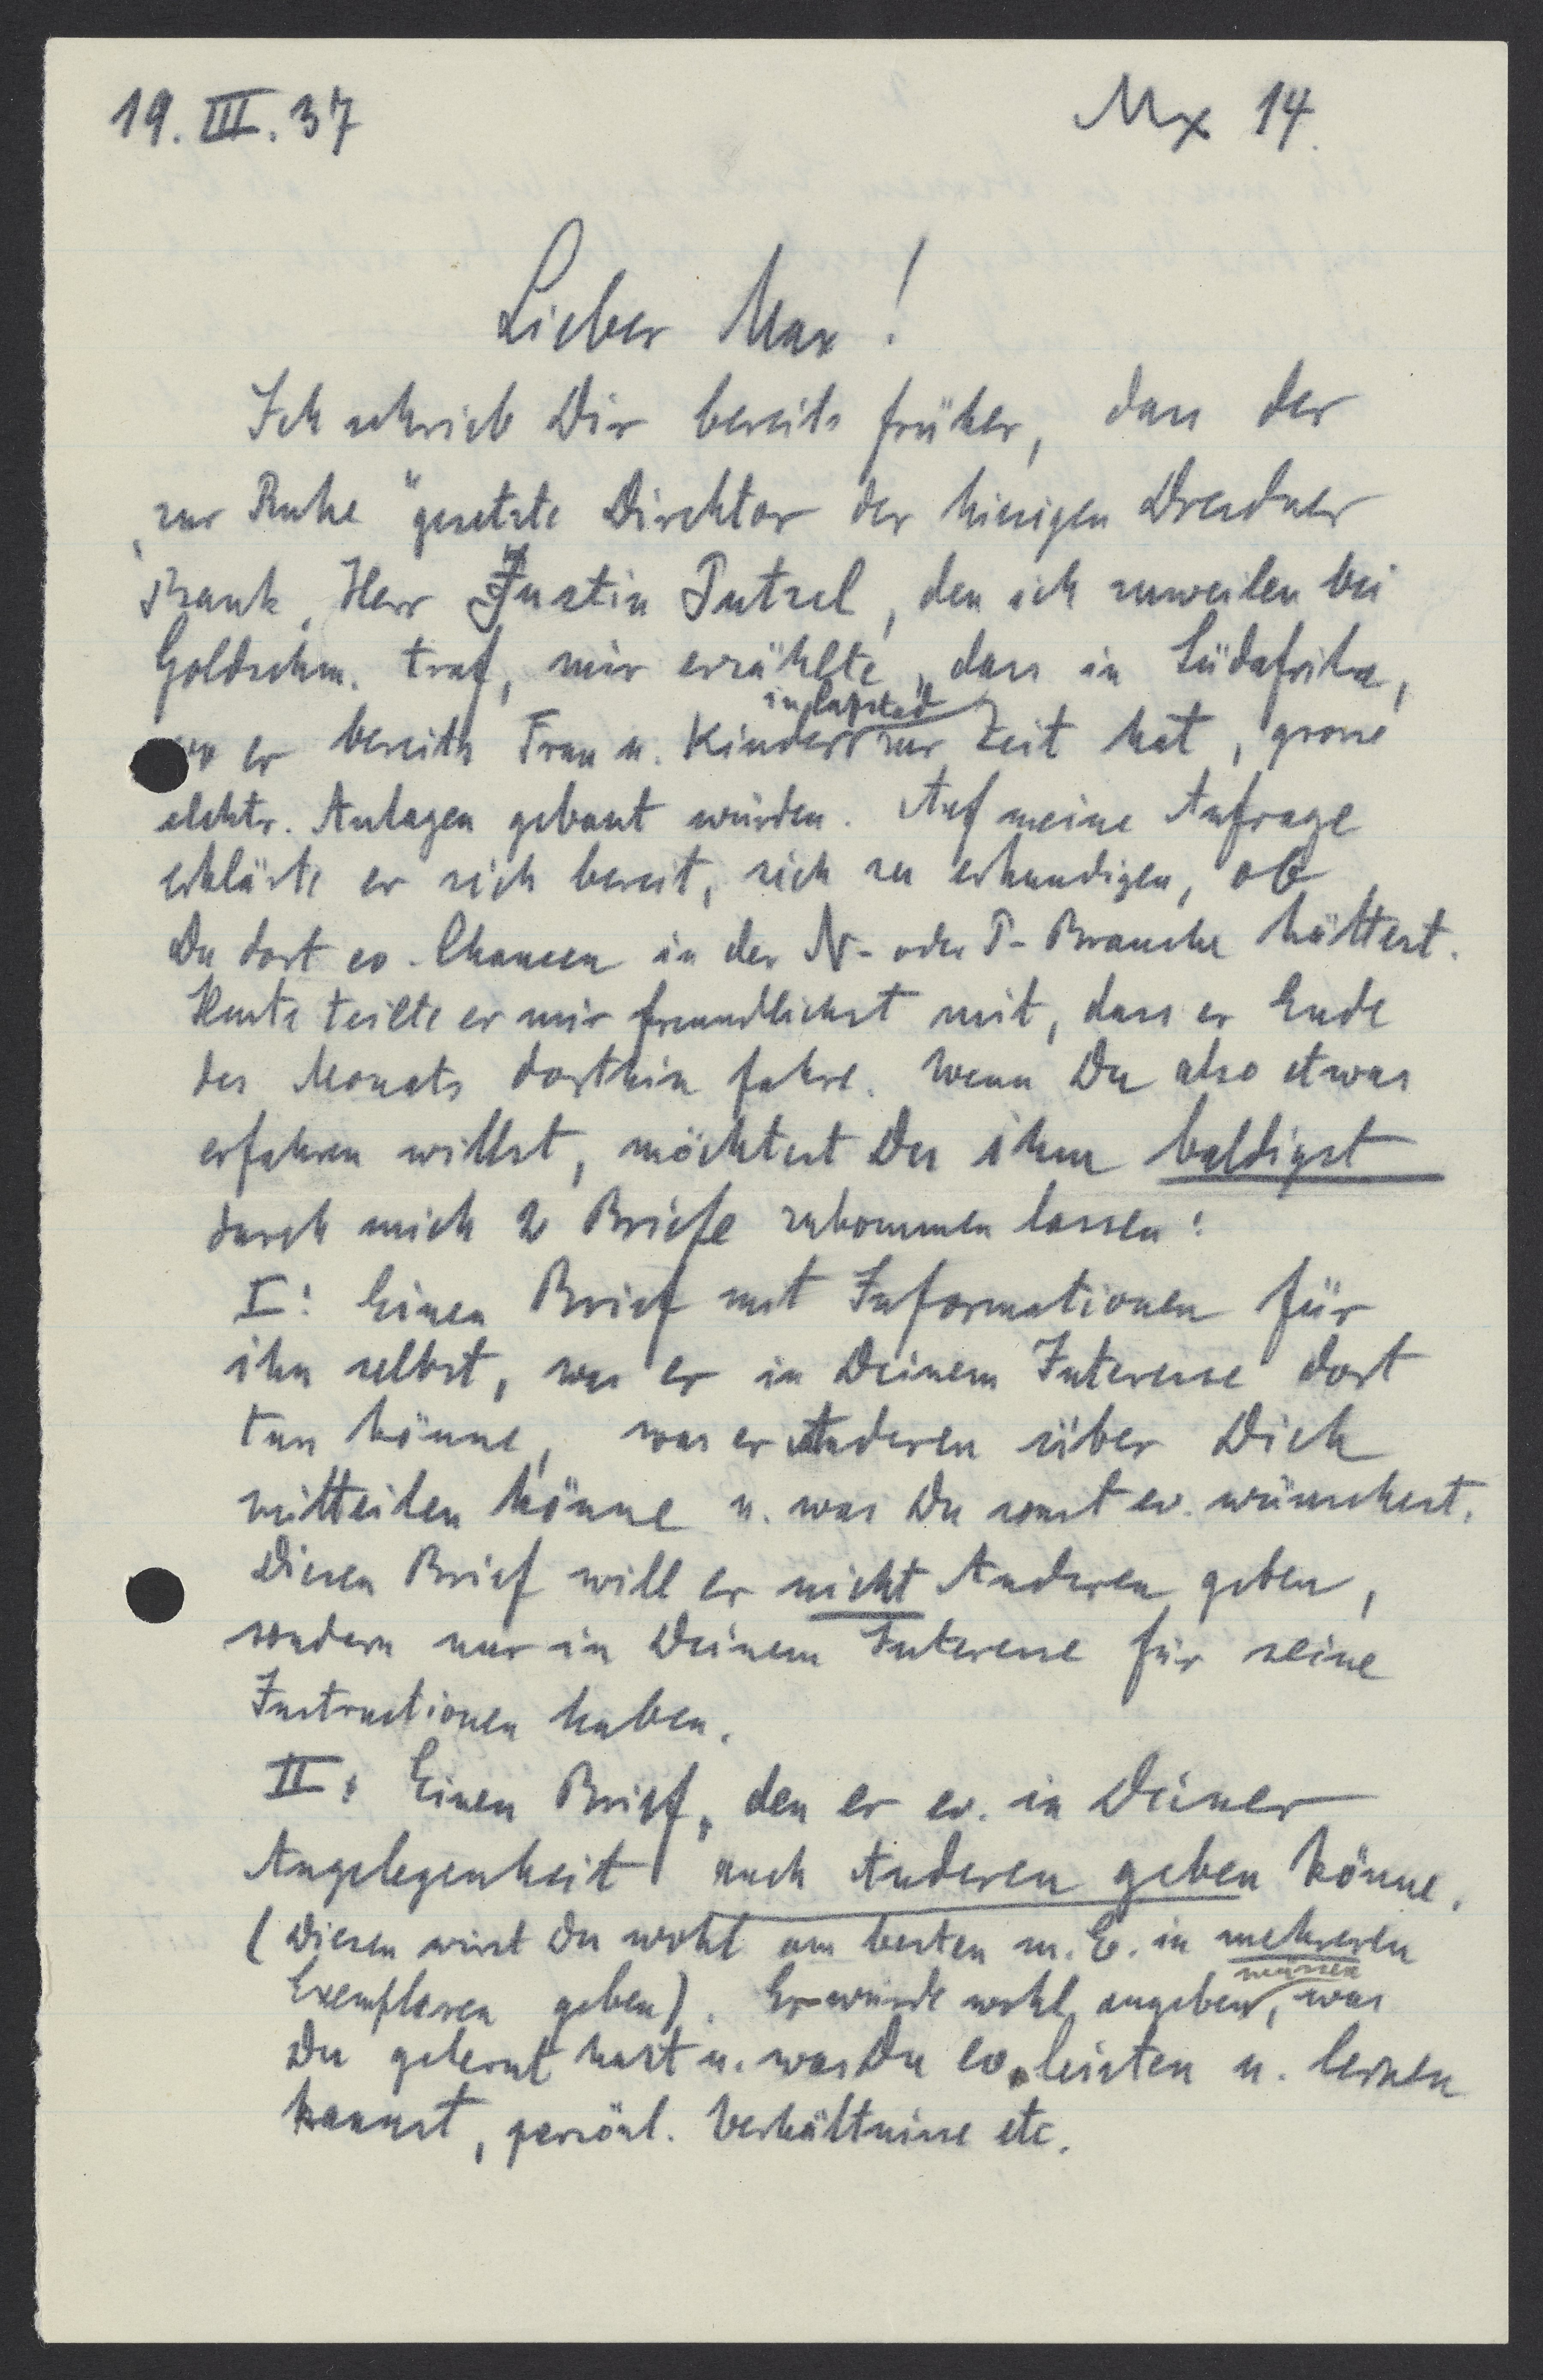 19. III. 37
Mx 14.
Lieber Max!
Ich schrieb Dir bereits früher, dass der
"zur Ruhe" gesetzte Direktor der hiesigen Dresdner
Bank, Herr Justin Putzel, den ich zuweilen bei
Goldschm. traf, mir erzählte, dass in Südafrika,
in Capstadt
wo er bereits Frau u. Kinder zur Zeit hat, grosse
elektr. Anlagen gebaut würden. Auf meine Anfrage
erklärte er sich bereit, sich zu erkundigen, ob
Du dort ev. Chancen in der N- oder P- Branche hättest.
Heute teilte er mir freundlichst mit, dass er Ende
des Monats dorthin fahre. Wenn Du also etwas
erfahren willst, möchtest Du ihm baldigst
durch mich 2 Briefe zukommen lassen:
I: Einen Brief mit Informationen für
ihn selbst, was er in Deinem Interesse dort
tun könne, was er Anderen über Dich
mitteilen könne u. was Du sonst ev. wünschest.
Diesen Brief will er nicht Anderen geben,
sondern nur in Deinem Interesse für seine
Instructionen haben.
II: Einen Brief, den er ev. in Deiner
Angelegenheit auch Anderen geben könne.
(Diesen wirst Du wohl am besten m. E. in mehreren
müssen
Exemplaren geben). Er würde wohl angeben, was
Du gelernt hast u. was Du ev. leisten u. lernen
kannst, persönl. Verhältnisse etc.